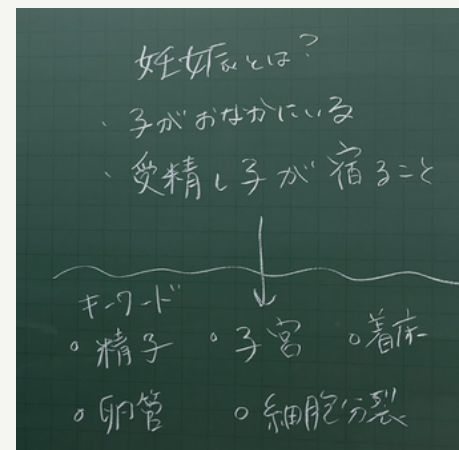 妊娠とは?
・子がおなかにいる
・受精し子が宿ること
キーワード
○精子 ○子宮 ○着床
○卵管 ○細胞分裂